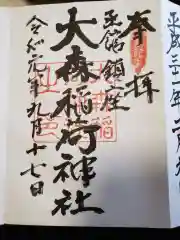 奉拝
函館鎮座
大森稲荷神社
令和元年九月十七日
平成三十一年